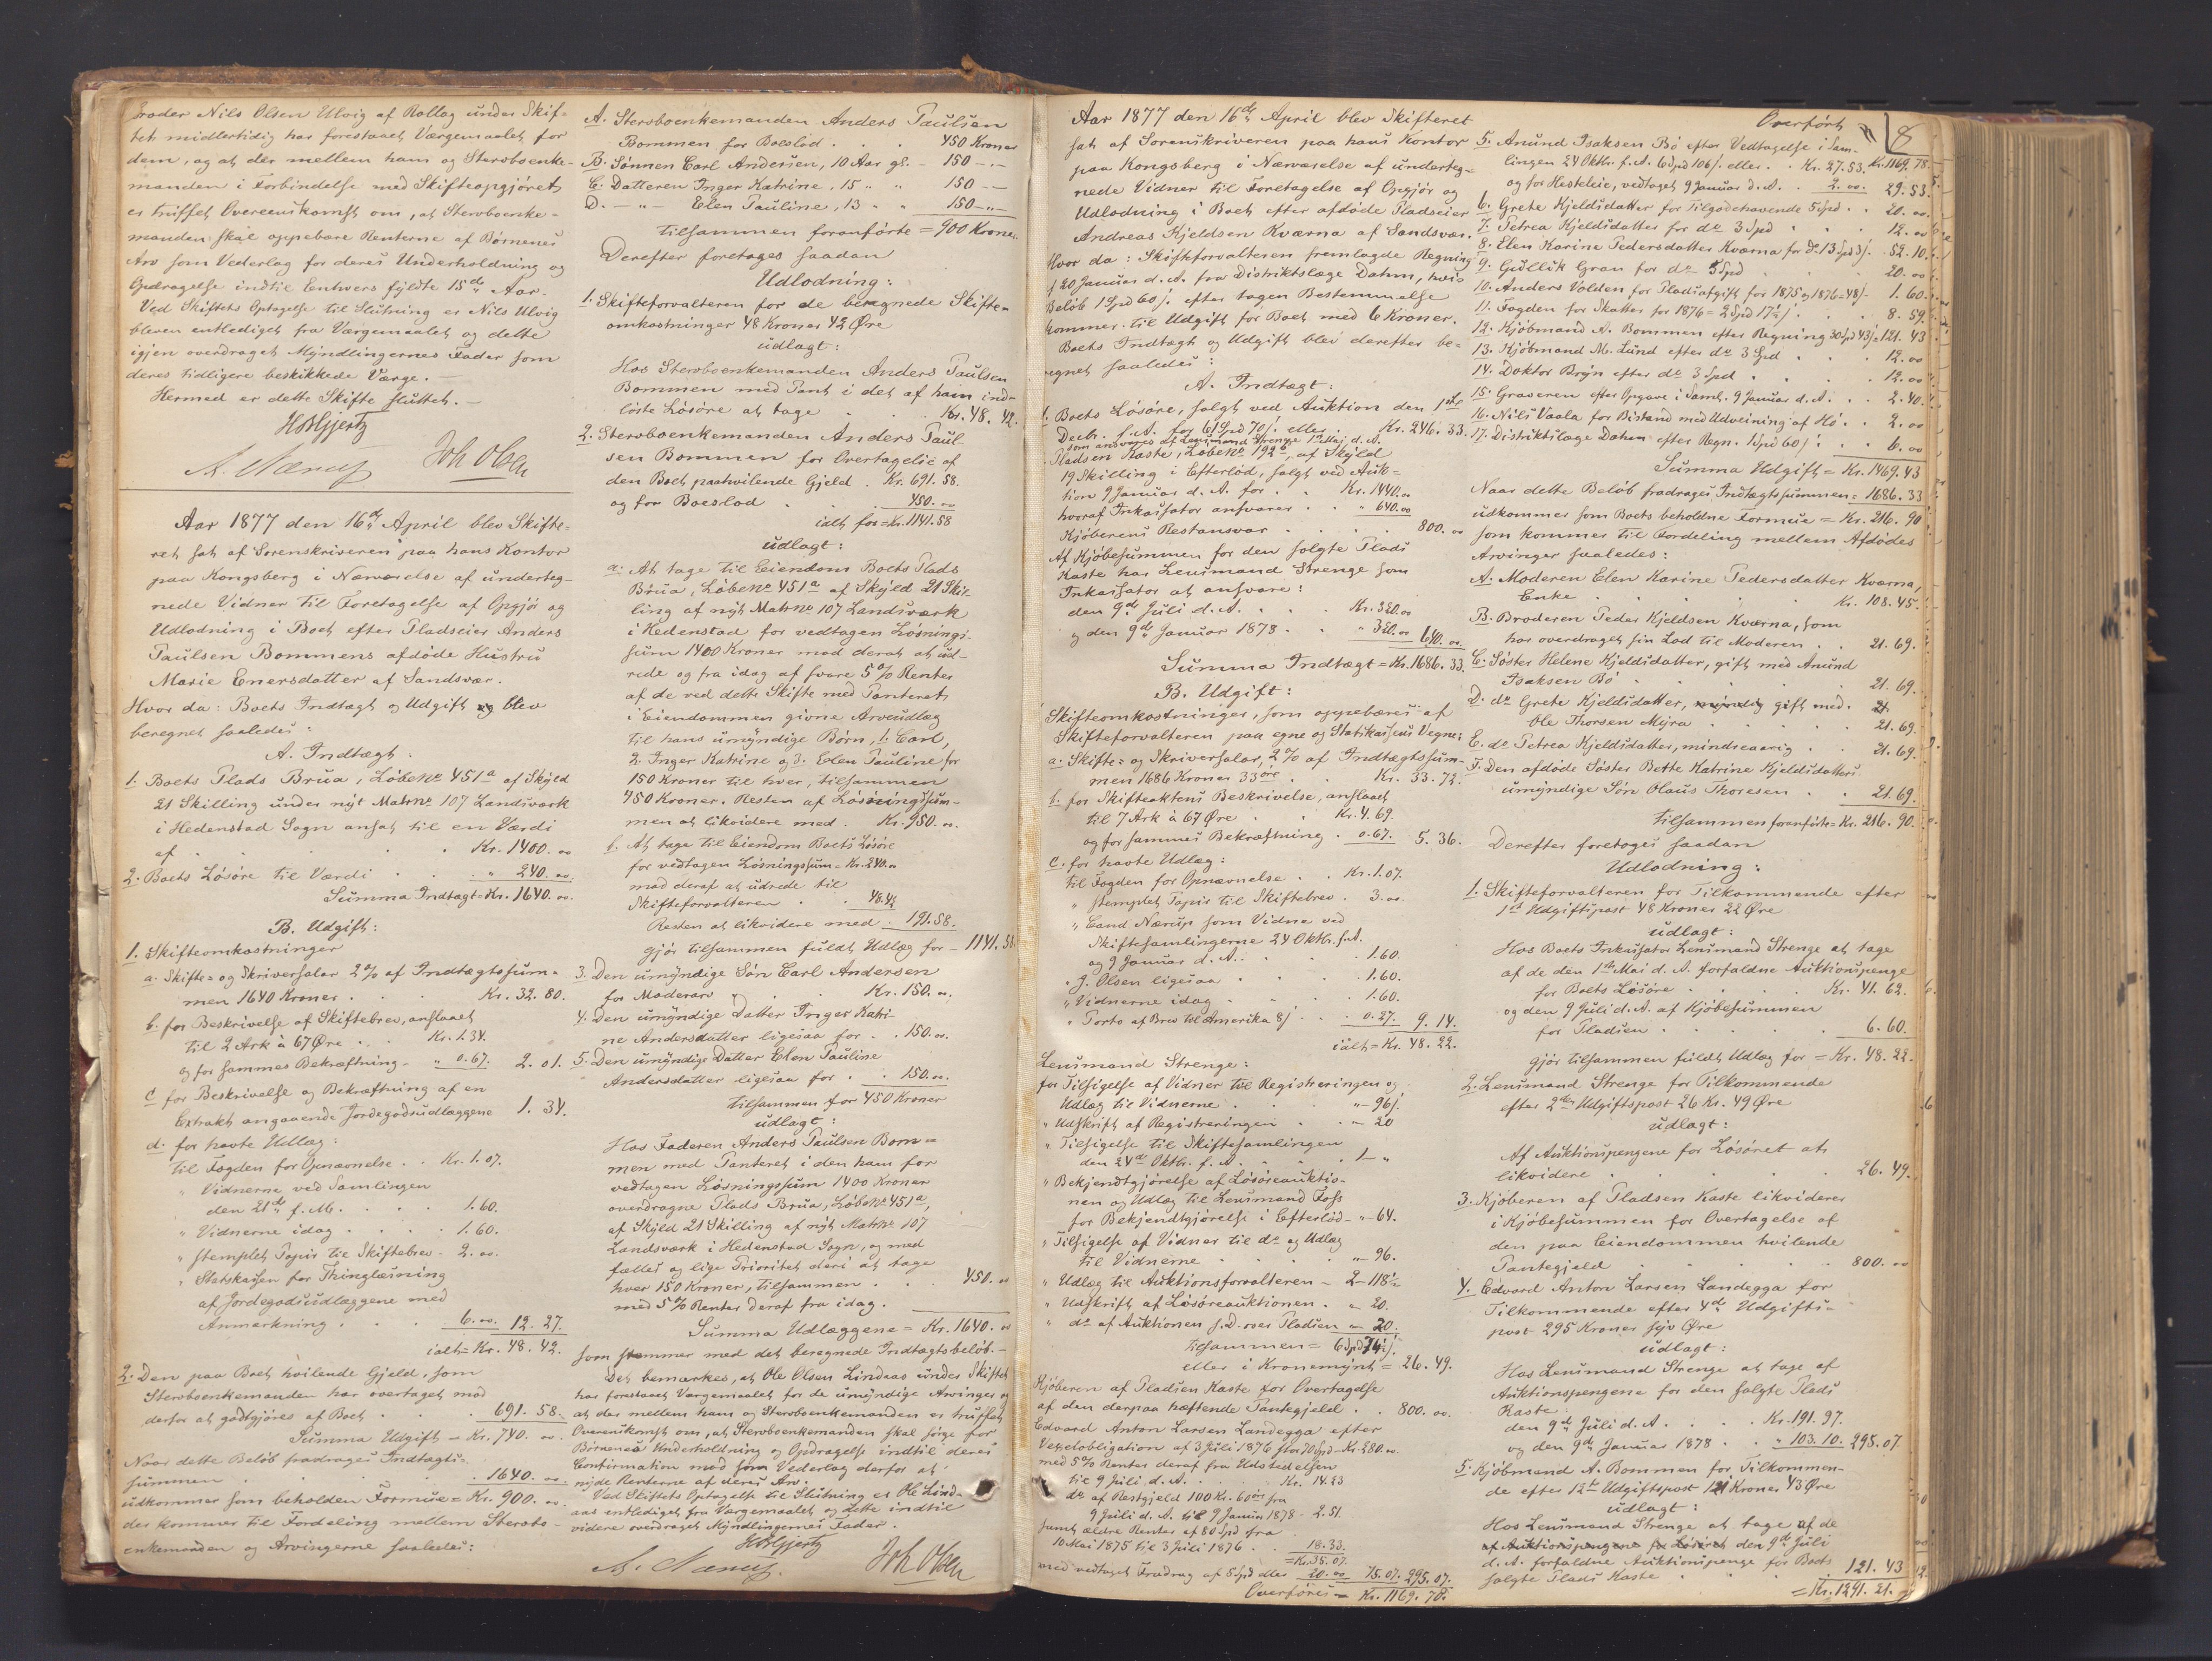 Broder Nils Olsen Ulvig af Rollag under Skif-
tet midlertidig har forestaaet Værgemaalet for
dem, og at der mellem ham og Stervboenke-
manden i Forbindelse med Skifteopgjöret
er truffet Overeenskomst om, at Stervboenke-
manden skal oppebære Renterne af Börnenes
Arv som Vederlag for deres Underholdning og
Opdragelse indtil Enhvers fyldte 15de Aar.
Ved Skiftets Optagelse til Slutning er Nils Ulvig
bleven entlediget fra Værgemaalet og dette
igjen overdraget Myndlingernes Fader som
deres tidligere beskikkede Værge. —
Hermed er dette Skifte sluttet. —
A. Nærup Joh Olsen
Aar 1877 den 16de April blev Skifte-
ret sat af Sorenskriveren paa hans Kontor
paa Kongsberg i Nærværelse af underteg-
nede Vidner til Foretagelse af Opgjör og
Udlodning i Boet efter Pladseier Anders
Paulsen Bommens afdöde Hustru
Marie Enersdatter af Sandsvær.
Hvor da: Boets Indtægt og Udgift og blev
beregnet saaledes:
A. Indtægt:
1. Boets Plads Brua, Löbeno 451a af Skyld
21 Skilling under nyt Matrno 107 Landsværk
i Hedenstad Sogn ansat til en Værdi
af . . . Kr. 1400. 00
2. Boets Lösöre til Værdi . . " 240. 00.
Summa Indtægt = Kr. 1640. 00.
B. Udgift:
1. Skifteomkostninger
a. Skifte- og Skriversalær 2% af Indtægtssum-
men 1640 Kroner . . Kr. 32. 80.
b. for Beskrivelse af Skiftebrev, anslaaet
til 2 Ark à 67 Öre . . Kr. 1.34.
og for sammes Bekræftning - " 0.67. 2. 01.
c for Beskrivelse og Bekræftning af en
Extrakt angaaende Jordegodsudlæggene 1. 34.
d. for havte Udlæg:
til Fogden for Opnævnelse . . Kr. 1. 07.
" Vidnerne ved Samlingen
den 21de f. M. . . . 1.60.
" Vidnerne idag . . . 1.60.
" stemplet Papir til Skiftebrev - 2. 00.
" Statskassen for Thinglæsning
af Jordegodsudlæggene med
Anmærkning . . . 6. 00. 12. 27.
ialt = Kr. 48. 42.
2. Den paa Boet hvilende Gjeld, som
Stervboenkemanden har overtaget mod
derfor at godtgjöres af Boet . . 691. 58.
Summa Udgift = Kr. 740. 00.
Naar dette Belöb fradrages Indtægts-
summen . . . 1640. 00.
udkommer som beholden Formue = Kr. 900. 00.
der kommer til Fordeling mellem Stervbo-
enkemanden og Arvingerne saaledes:
A. Stervboenkemanden Anders Paulsen
Bommen for Boeslod . . 450 Kroner
B. Sönnen Carl Andersen, 10 Aar gl. - 150 —
C. Datteren Inger Katrine, 15 " " 150 —
D. — " — Elen Pauline, 13 " " 150 —
tilsammen foranförte = 900 Kroner.
Derefter foretoges saadan
Udlodning:
1. Skifteforvalteren for de beregnede Skifte-
omkostninger 48 Kroner 42 Öre
udlagt:
Hos Stervboenkemanden Anders Paulsen
Bommen med Pant i det af ham ind-
löste Lösöre at tage . . Kr. 48. 42.
2. Stervboenkemanden Anders Paul-
sen Bommen for Overtagelse af
den Boet paahvilende Gjeld . Kr. 691. 58.
og for Boeslod . . 450. 00
ialt for = Kr. 1141. 58
udlagt:
a. At tage til Eiendom Boets Plads
Brua, Löbeno 451a af Skyld 21 Skil-
ling af nyt Matrno 107 Landsværk
i Hedenstad for vedtagen Lösnings-
sum 1400 Kroner mod deraf at ud-
rede og fra idag af svare 5% Renter
af de ved dette Skifte med Panteret
i Eiendommen givne Arveudlæg
til hans umyndige Börn, 1. Carl,
2. Inger Katrine og 3. Elen Pauline for
150 Kroner til hver, tilsammen
450 Kroner. Resten af Lösningssum-
men at likvidere med . Kr. 950. 00.
b. At tage til Eiendom Boets Lösöre
for vedtagen Lösningssum = Kr. 240. 00
mod deraf at udrede til
Skifteforvalteren . . 48.42
Resten at likvidere med . 191.58.
gjör tilsammen fuldt Udlæg for - 1141. 58
3. Den umyndige Sön Carl Andersen
for Mödrearv . . Kr. 150. 00.
4. Den umyndige Datter Inger Katri-
ne Andersdatter ligesaa for . . 150. 00.
5. Den umyndige Datter Elen Pauline
Andersdatter ligesaa for . . 150. 00.
tilsammen for 450 Kroner
udlagt:
Hos Faderen Anders Paulsen Bom-
men med Panteret i den ham for
vedtagen Lösningssum 1400 Kroner
overdragne Plads Brua, Löbeno 451a,
af Skyld 21 Skilling af nyt Matrno 107
Landsværk i Hedenstad Sogn, og med
fælles og lige Prioritet deri at tage
hver 150 Kroner, tilsammen . . 450. 00
med 5% Renter deraf fra idag.
Summa Udlæggene = Kr. 1640. 00
som stemmer med det beregnede Indtægtsbelöb. —
Det bemærkes, at Ole Olsen Lindaas under Skiftet
har forestaaet Værgemaalet for de umyndige Arvinger og
at der mellem ham og Stervboenkemanden er truffet
Overenskomst om, at Stervboenkemanden skal sörge for
Börnenes Underholdning og Opdragelse indtil deres
Confirmation mod som Vederlag derfor at
nyde Renterne af deres Arv.
Ved Skiftets Optagelse til Slutning er Ole Lind-
aas entlediget fra Værgemaalet og dette indtil
videre overdraget Myndlingernes Fader.
A. Nærup. Joh Olsen
Aar 1877 den 16de April blev Skifteret
sat af Sorenskriveren paa hans Kontor
paa Kongsberg i Nærværelse af underteg-
nede Vidner til Foretagelse af Opgjör og
Udlodning i Boet efter afdöde Pladseier
Andreas Kjeldsen Kværna af Sandsvær.
Hvor da: Skifteforvalteren fremlagde Regning
af 20 Januar d. A. fra Distriktslæge Dahm, hvis
Belöb 1 Spd 60 s. efter tagen Bestemmelse
kommer til Udgift for Boet med 6 Kroner.
Boets Indtægt og Udgift blev derefter be-
regnet saaledes:
A. Indtægt:
1. Boets Lösöre, solgt ved Auktion den 1ste
Decbr. f. A. for 61 Spd 70 s. eller . Kr. 246. 33.
som ansvares af Lensmand Strenge 1ste Mai d. A.
Pladsen Kaste, Löbeno 192b, af Skyld
19 Skilling i Efterlöd, solgt ved Auk-
tion 9 Januar d. A. for . . Kr. 1440. 00
hvoraf Inkassator ansvarer . . " 640. 00
Kjöberens Restansvar . . . 800. 00
Af Kjöbesummen for den solgte Plads
Kaste har Lensmand Strenge som
Inkassator at ansvare:
den 9de Juli d. A. . . Kr. 320. 00
og den 9de Januar 1878 . . " 320. 00 640. 00.
Summa Indtægt = Kr. 1686. 33.
B. Udgift:
Skifteomkostninger, som oppebæres af
Skifteforvalteren paa egne og Statskassens Vegne:
a. Skifte- og Skriversalær, 2% af Indtægtssum-
men 1686 Kroner 33 öre . . Kr. 33. 72.
b. for Skifteaktens Beskrivelse, anslaaet
til 7 Ark à 67 Öre . . Kr. 4. 69.
og for sammes Bekræftning . 0.67. 5. 36.
c. for havte Udlæg:
til Fogden for Opnævnelse . . Kr. 1.07.
" stemplet Papir til Skiftebrev . 3. 00.
" Cand Nærup som Vidne ved
Skiftesamlingerne 24 Oktbr. f. A.
og 9 Januar d. A. . . . 1.60.
" J. Olsen ligesaa . . . 1.60.
" Vidnerne idag . . . 1.60.
" Porto af Brev til Amerika 8 s . . 0.27. 9. 14.
ialt = Kr. 48. 22.
Lensmand Strenge:
for Tilsigelse af Vidner til Registreringen og
Udlæg til Vidnerne . . " - 96 s.
" Udskrift af Registreringen . . " - 20
" Tilsigelse til Skiftesamlingen
den 24de Oktbr. f. A. . . . 1 - "
" Bekjendtgjörelse af Lösöreauktio-
nen og Udlæg til Lensmand Foss
for Bekjendtgjörelse i Efterlöd - " - 64.
" Tilsigelse af Vidner til do og Udlæg
til Vidnerne . . . " - 96.
" Udlæg til Auktionsforvalteren - 2 - 118½
" Udskrift af Lösöreauktionen . " 20.
" do af Auktionen s. D. over Pladsen " 20.
tilsammen = 6 Spd 74½ s.
eller i Kronemynt = 26. 49.
Kjöberen af Pladsen Kaste for Overtagelse
af den derpaa hæftende Pantegjeld . . 800. 00.
Edvard Anton Larsen Landegga efter
Vexelobligation af 3 Juli 1876 stor 70 Spd = Kr. 280. 00.
med 5% Renter deraf fra Udstedelsen
til 9 Juli d. A. . . Kr. 14.23
do af Restgjeld 100 Kr. 60 öre fra
9 Juli d. A. til 9 Januar 1878 - 2.51.
samt ældre Renter af 80 Spd fra
10 Mai 1875 til 3 Juli 1876 . . 18.33.
= Kr. 35. 07.
med vedtaget Fradrag af 5 Spd eller 20. 00 15. 07. 295. 07.
Overföres = Kr. 1169. 78.
8
Overfört " Kr. 1169. 78.
5. Anund Isaksen Bö efter Vedtagelse i Sam-
lingen 24 Oktbr. f. A. 6 Spd 106 s. eller . . Kr. 27. 53.
og for Hesteleie, vedtaget 9 Januar d. A. . 2. 00. 29. 53.
6. Grete Kjeldsdatter for Tilgodehavende 5 Spd . . 20. 00.
7. Petrea Kjeldsdatter for do 3 Spd . . 12. 00
8. Elen Karine Pedersdatter Kværna for do 13 Spd 3 s. . 52. 10.
9. Gullik Gran for do 5 Spd . . 20. 00
10. Anders Volden for Pladsafgift for 1875 og 1876 = 48 s - 1. 60.
11. Fogden for Skatter for 1876 = 2 Spd 17½ s . . 8. 59.
12. Kjöbmand A. Bommen efter Regning 30 Spd 43 s = 121. 43
13. Kjöbmand M. Lund efter do 3 Spd . . 12. 00
14. Doktor Bryn efter do 3 Spd . . 12. 00
15. Graveren efter Opgave i Saml. 9 Januar d. A. . . 2. 40.
16. Nils Vaala for Bistand med Udveining af Hö . . 2. 00
17. Distriktslæge Dahm efter Regn. 1 Spd 60 s . . 6. 00
Summa Udgift = Kr. 1469. 43
Naar dette Belöb fradrages Indtægtssummen = 1686. 33
udkommer som Boets beholdne Formue = Kr. 216. 90
som kommer til Fordeling mellem Afdödes
Arvinger saaledes:
A. Moderen Elen Karine Pedersdatter Kværna,
Enke . . . Kr. 108. 45.
B. Broderen Peder Kjeldsen Kværna, som
har overdraget sin Lod til Moderen . . 21. 69.
C. Söster Helene Kjeldsdatter, gift med Anund
Isaksen Bö . . . 21. 69.
D. do Grete Kjeldsdatter, myndig gift med
Ole Thorsen Myra . . . 21. 69.
E. do Petrea Kjeldsdatter, mindreaarig . . 21. 69.
F. Den afdöde Söster Berte Katrine Kjeldsdatters
umyndige Sön Olaus Thoresen . . 21. 69.
tilsammen foranförte = Kr. 216. 90.
Derefter foretoges saadan
Udlodning:
1. Skifteforvalteren for Tilkommende efter
1ste Udgiftspost 48 Kroner 22 Öre
udlagt:
Hos Boets Inkassator Lensmand Strenge at tage
af de den 1ste Mai d. A. forfaldne Auktionspenge
for Boets Lösöre . . . Kr. 41. 62.
og den 9 Juli d. A. af Kjöbesummen
for Pladsen . . . 6. 60.
gjör tilsammen fuldt Udlæg for = Kr. 48. 22.
2. Lensmand Strenge for Tilkommende
efter 2den Udgiftspost 26 Kr. 49 Öre
udlagt:
Af Auktionspengene for Lösöret at
likvidere . . . 26. 49.
3. Kjöberen af Pladsen Kaste likviderer
i Kjöbesummen for Overtagelse af
den paa Eiendommen hvilende
Pantegjeld . . . 800. 00
4. Edvard Anton Larsen Landegga for
Tilkommende efter 4de Udgifts-
post 295 Kroner syv Öre
udlagt:
Hos Lensmand Strenge at tage af
Auktionspengene for den solgte Plads
Kaste:
den 9de Juli d. A. . . . Kr. 191. 97.
og den 9de Januar 1878 . . " 103. 10. 295. 07.
5. Kjöbmand A. Bommen for Tilkommen-
de efter 12te Udgiftspost 121 Kroner 43 Öre
udlagt:
Hos Lensmand Strenge at tage af de
af Auktionspengene for Lösöret den 9de Juli
d. A. forfaldne Auktionspenge for Boets
solgte Plads Kaste . . . 121. 43
= Kr. 1291. 21.